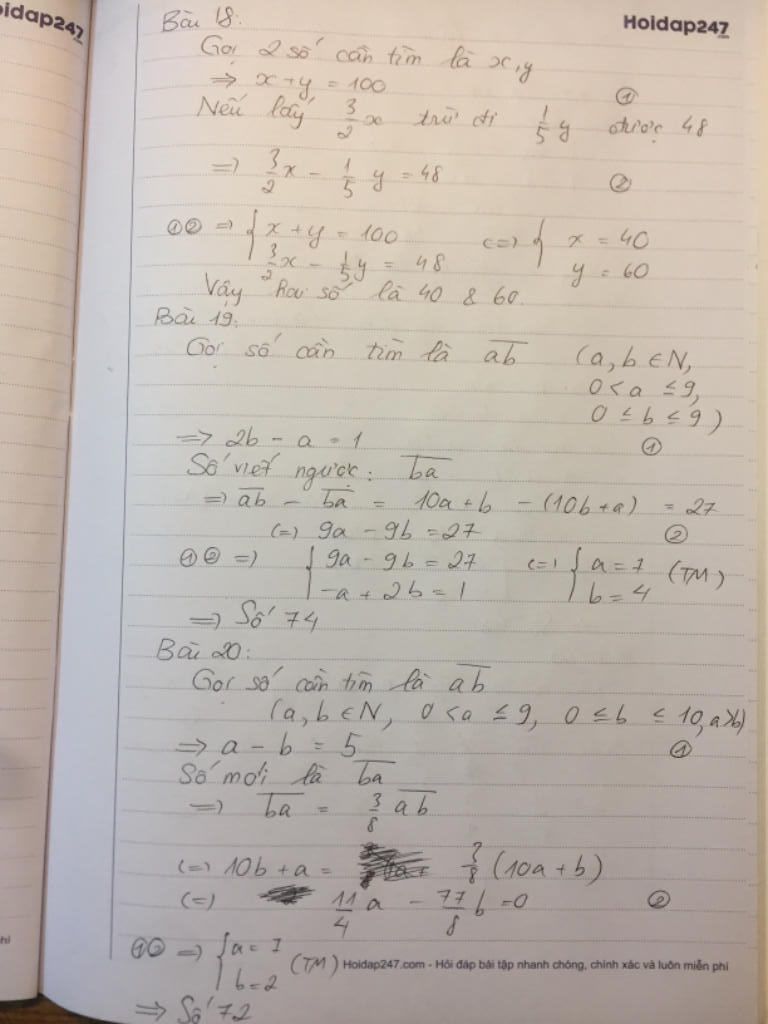 oidap247
Hoidap247
Bài 18:
Gọi 2 số cần tìm là x, y
=> x + y = 100 ①
Nếu lấy 3/2 x trừ đi 1/5 y được 48
=> 3/2 x - 1/5 y = 48 ②
①② => { x + y = 100 <=> { x = 40
3/2 x - 1/5 y = 48 y = 60
Vậy hai số là 40 & 60.
Bài 19:
Gọi số cần tìm là a̅b̅ (a, b ∈ N,
0 < a ≤ 9,
0 ≤ b ≤ 9)
=> 2b - a = 1 ①
Số viết ngược: b̅a̅
=> a̅b̅ - b̅a̅ = 10a + b - (10b + a) = 27
<=> 9a - 9b = 27 ②
①② => { 9a - 9b = 27 <=> { a = 7 (TM)
-a + 2b = 1 b = 4
=> Số 74
Bài 20:
Gọi số cần tìm là a̅b̅
(a, b ∈ N, 0 < a ≤ 9, 0 ≤ b ≤ 10, a > b)
=> a - b = 5 ①
Số mới là b̅a̅
=> b̅a̅ = 3/8 a̅b̅
<=> 10b + a = 3/8 (10a + b)
<=> 11/4 a - 77/8 b = 0 ②
①② => { a = 7
b = 2 (TM)
Hoidap247.com - Hỏi đáp bài tập nhanh chóng, chính xác và luôn miễn phí
=> Số 72